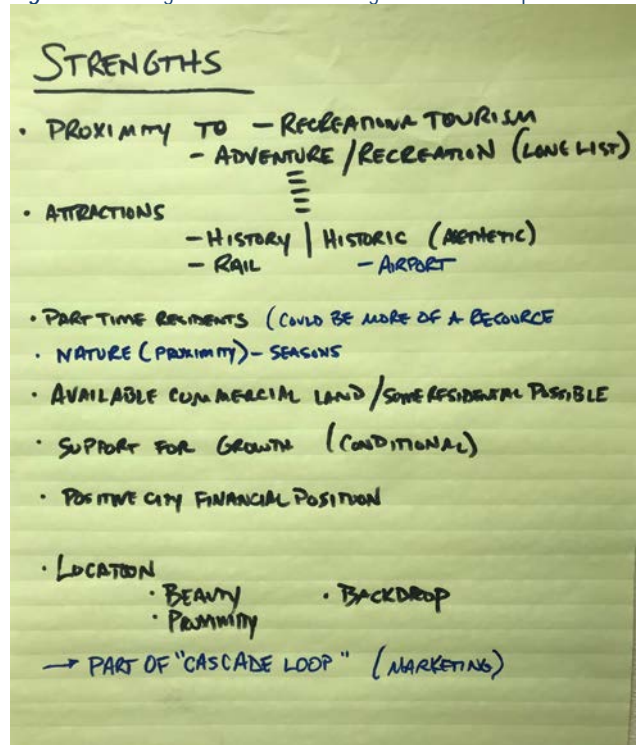 STRENGTHS
• PROXIMITY TO – RECREATIONA TOURISM
– ADVENTURE / RECREATION (LONG LIST)
• ATTRACTIONS
– HISTORY | HISTORIC (AESTHETIC)
– RAIL – AIRPORT
• PART TIME RESIDENTS (COULD BE MORE OF A RESOURCE
• NATURE (PROXIMITY) – SEASONS
• AVAILABLE COMMERCIAL LAND / SOME RESIDENTAL POSSIBLE
• SUPPORT FOR GROWTH (CONDITIONAL)
• POSITIVE CITY FINANCIAL POSITION
• LOCATION
• BEAUTY • BACKDROP
• PROXIMITY
→ PART OF "CASCADE LOOP" (MARKETING)